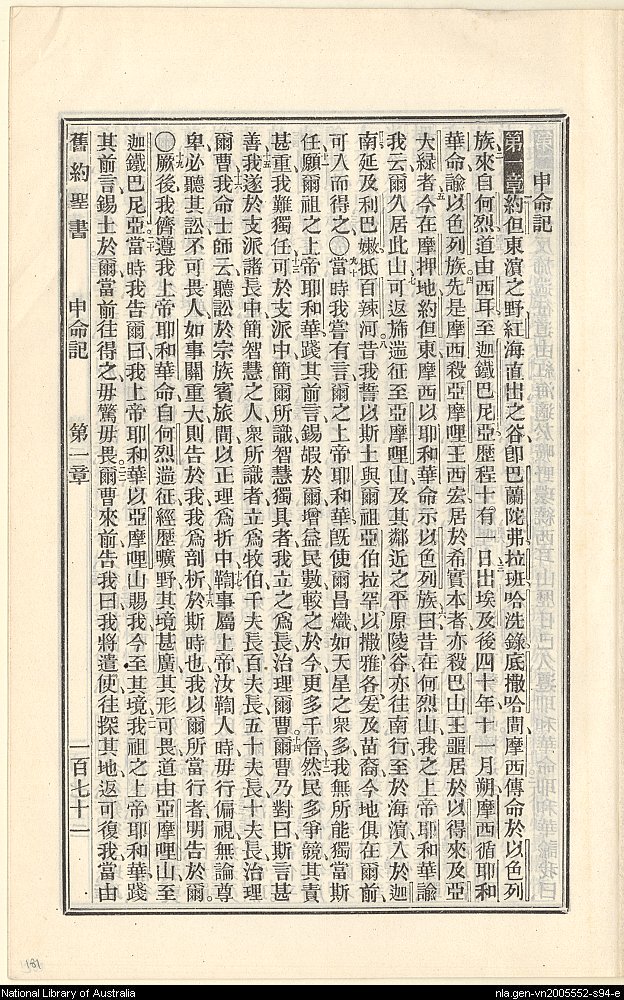 申命記
第一章約但東濱之野紅海直出之谷卽巴蘭陀弗拉班哈洗錄底撒哈間摩西傳命於以色列
族二來自何烈道由西耳至迦鐵巴尼亞歷程十有一日三出埃及後四十年十一月朔摩西循耶和
華命諭以色列族四先是摩西殺亞摩哩王西宏居於希實本者亦殺巴山王噩居於以得來及亞
大綠者五今在摩押地約但東摩西以耶和華命示以色列族六曰昔在何烈山我之上帝耶和華諭
我云爾久居此山七可返斾遄征至亞摩哩山及其鄰近之平原陵谷亦往南行至於海濱入於迦
南延及利巴嫩抵百辣河八昔我誓以斯土與爾祖亞伯拉罕以撒雅各爰及苗裔今地俱在爾前
可入而得之〇九十當時我嘗有言爾之上帝耶和華旣使爾昌熾如天星之衆多我無所能獨當斯
任十一願爾祖之上帝耶和華踐其前言錫嘏於爾增益民數較之於今更多千倍十二然民多爭競其責
甚重我難獨任十三可於支派中簡爾所識智慧獨具者我立之爲長治理爾曹十四爾曹乃對曰斯言甚
善十五我遂於支派諸長中簡智慧之人衆所識者立爲牧伯千夫長百夫長五十夫長十夫長治理
爾曹十六我命士師云聽訟於宗族賓旅間以正理爲折中十七鞫事屬上帝汝鞫人時毋行偏視無論尊
卑必聽其訟不可畏人如事關重大則告於我我爲剖析十八於斯時也我以爾所當行者明告於爾
〇十九厥後我儕遵我上帝耶和華命自何烈遄征經歷曠野其境甚廣其形可畏道由亞摩哩山至
迦鐵巴尼亞二十當時我告爾曰我上帝耶和華以亞摩哩山賜我今至其境二一我祖之上帝耶和華踐
其前言錫土於爾當前往得之毋驚毋畏二二爾曹來前告我曰我將遣使往探其地返可復我當由
舊約聖書 申命記 第一章 一百七十一
181
National Library of Australia nla.gen-vn2005552-s94-e